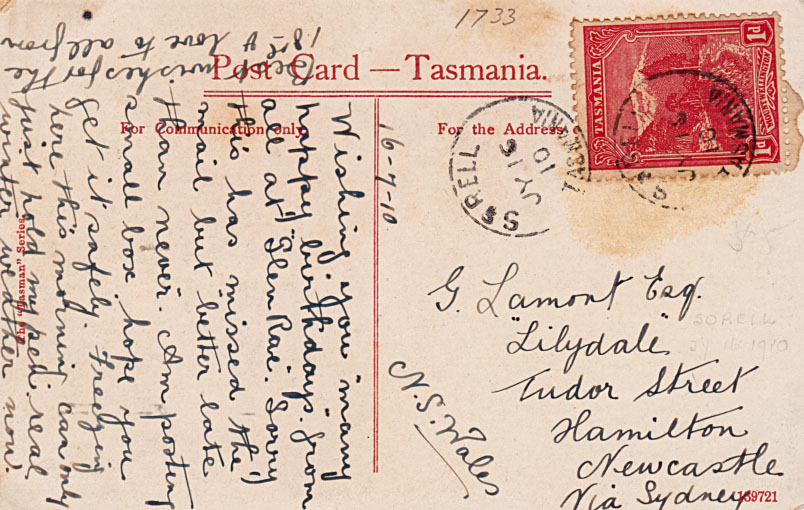 1733
Post Card — Tasmania.
For Communication only.
For the Address
16-7-10
Wishing you "many
happy birthdays" from
all at "Glen Rae". Sorry
this has missed the
mail but "better late
than never". Am posting
small box, hope you
get it safely. Freezing
here this morning can only
just hold my pen. real
winter weather now.
Best wishes for the
18th & love to all from
The "Tasman" Series
TASMANIA
1D
1D
SORELL
JY 16
10
TASMANIA
SORELL
JY 16
10
TASMANIA
G. Lamont Esq.
"Lilydale"
Tudor Street
Hamilton
Newcastle
Via Sydney
N.S. Wales
SORELL
JY 16 1910
139721